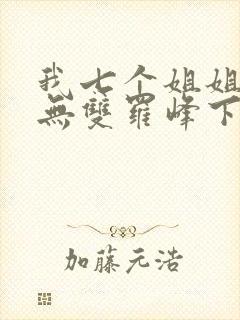 我七个姐姐
無雙羅峰下
加藤元浩